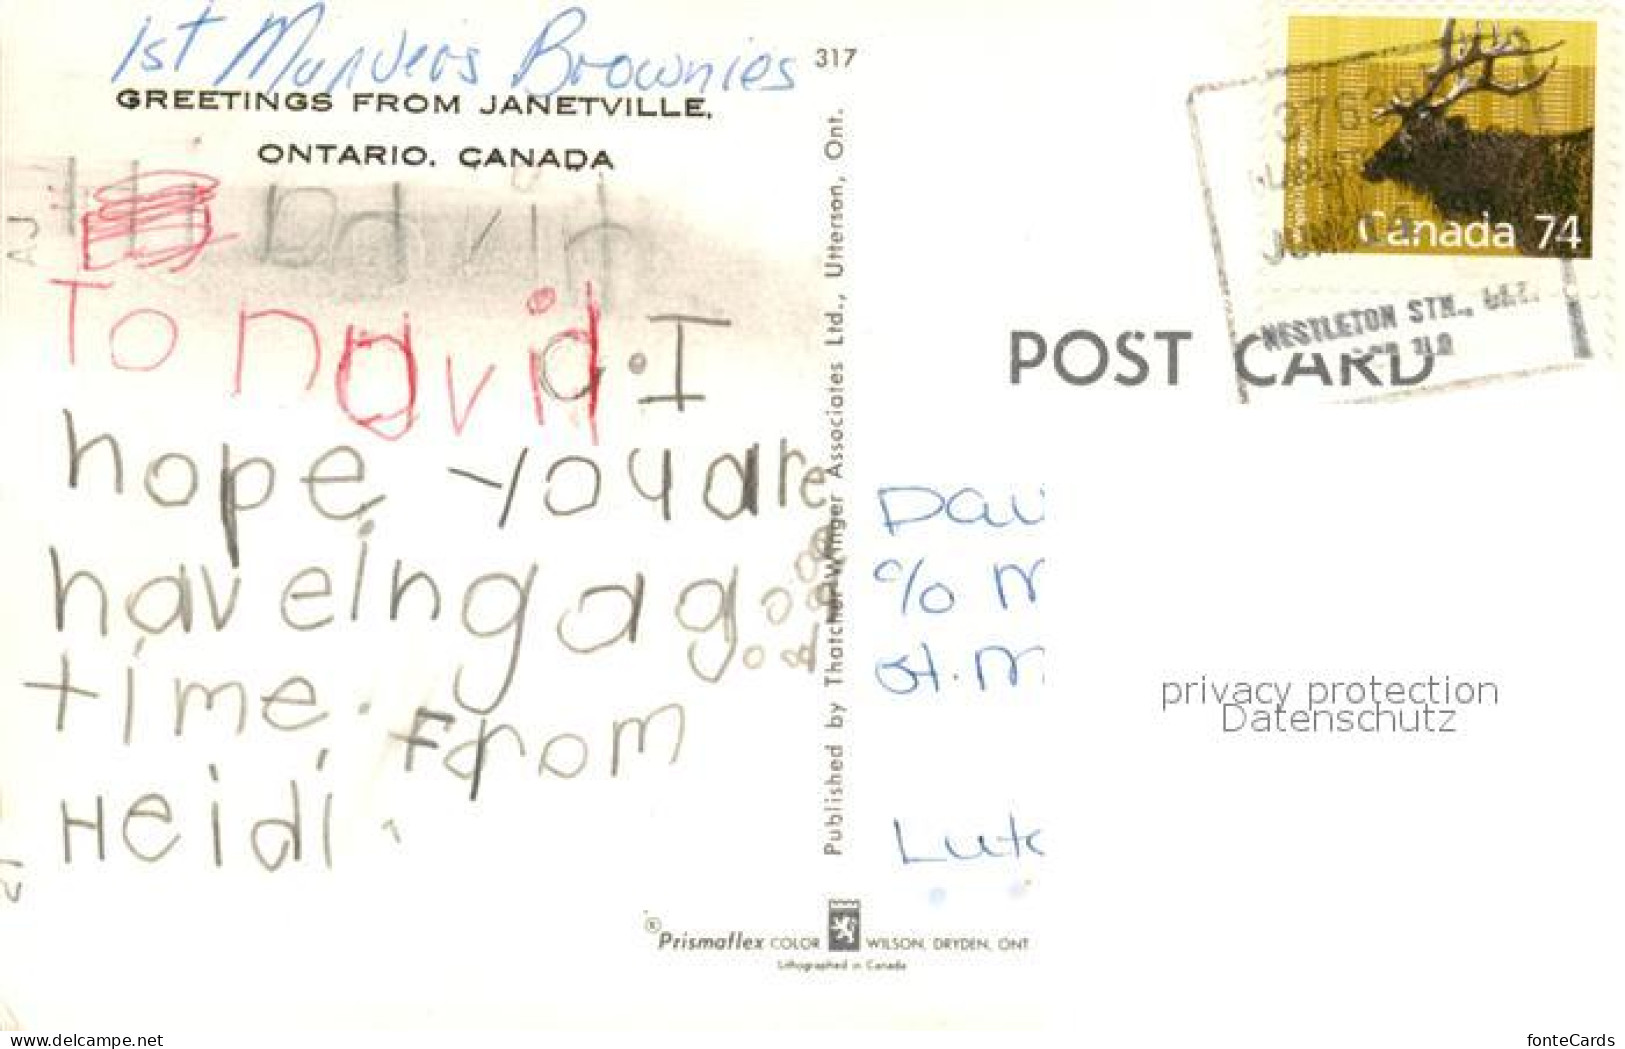 1st Manvers Brownies
317
GREETINGS FROM JANETVILLE,
ONTARIO. CANADA
David
To David. I
hope you are
haveing a g
time. From
Heidi.
Published by Thatcher-Winger Associates Ltd., Utterson, Ont.
Canada 74
NESTLETON STN., ONT.
POST CARD
Davi
c/o M
St. M
Lut
privacy protection
Datenschutz
Prismaflex COLOR WILSON, DRYDEN, ONT
Lithographed in Canada
www.delcampe.net
fonteCards